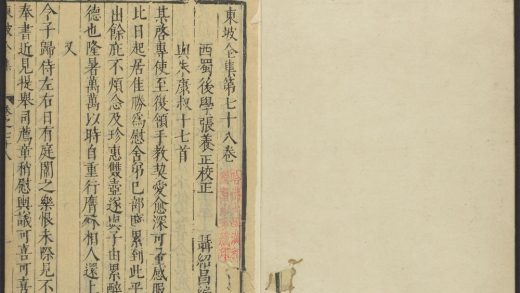 東坡全集第七十八卷
西蜀後學張養正校正
聶紹昌
與朱康叔十七首
某啓專使至復領手教契愛愈深可量感服
比日起居佳勝為慰舍弟已部賤累到此平
出餘庇不煩念及珍惠雙壺遂與子由累醉
德也隆暑萬萬以時自重行膺　相人還上
又
今子歸侍左右日有庭闈之樂恨未際見不
奉書近見提舉司薦章稍慰輿議可喜可喜
東坡全集
卷七十八